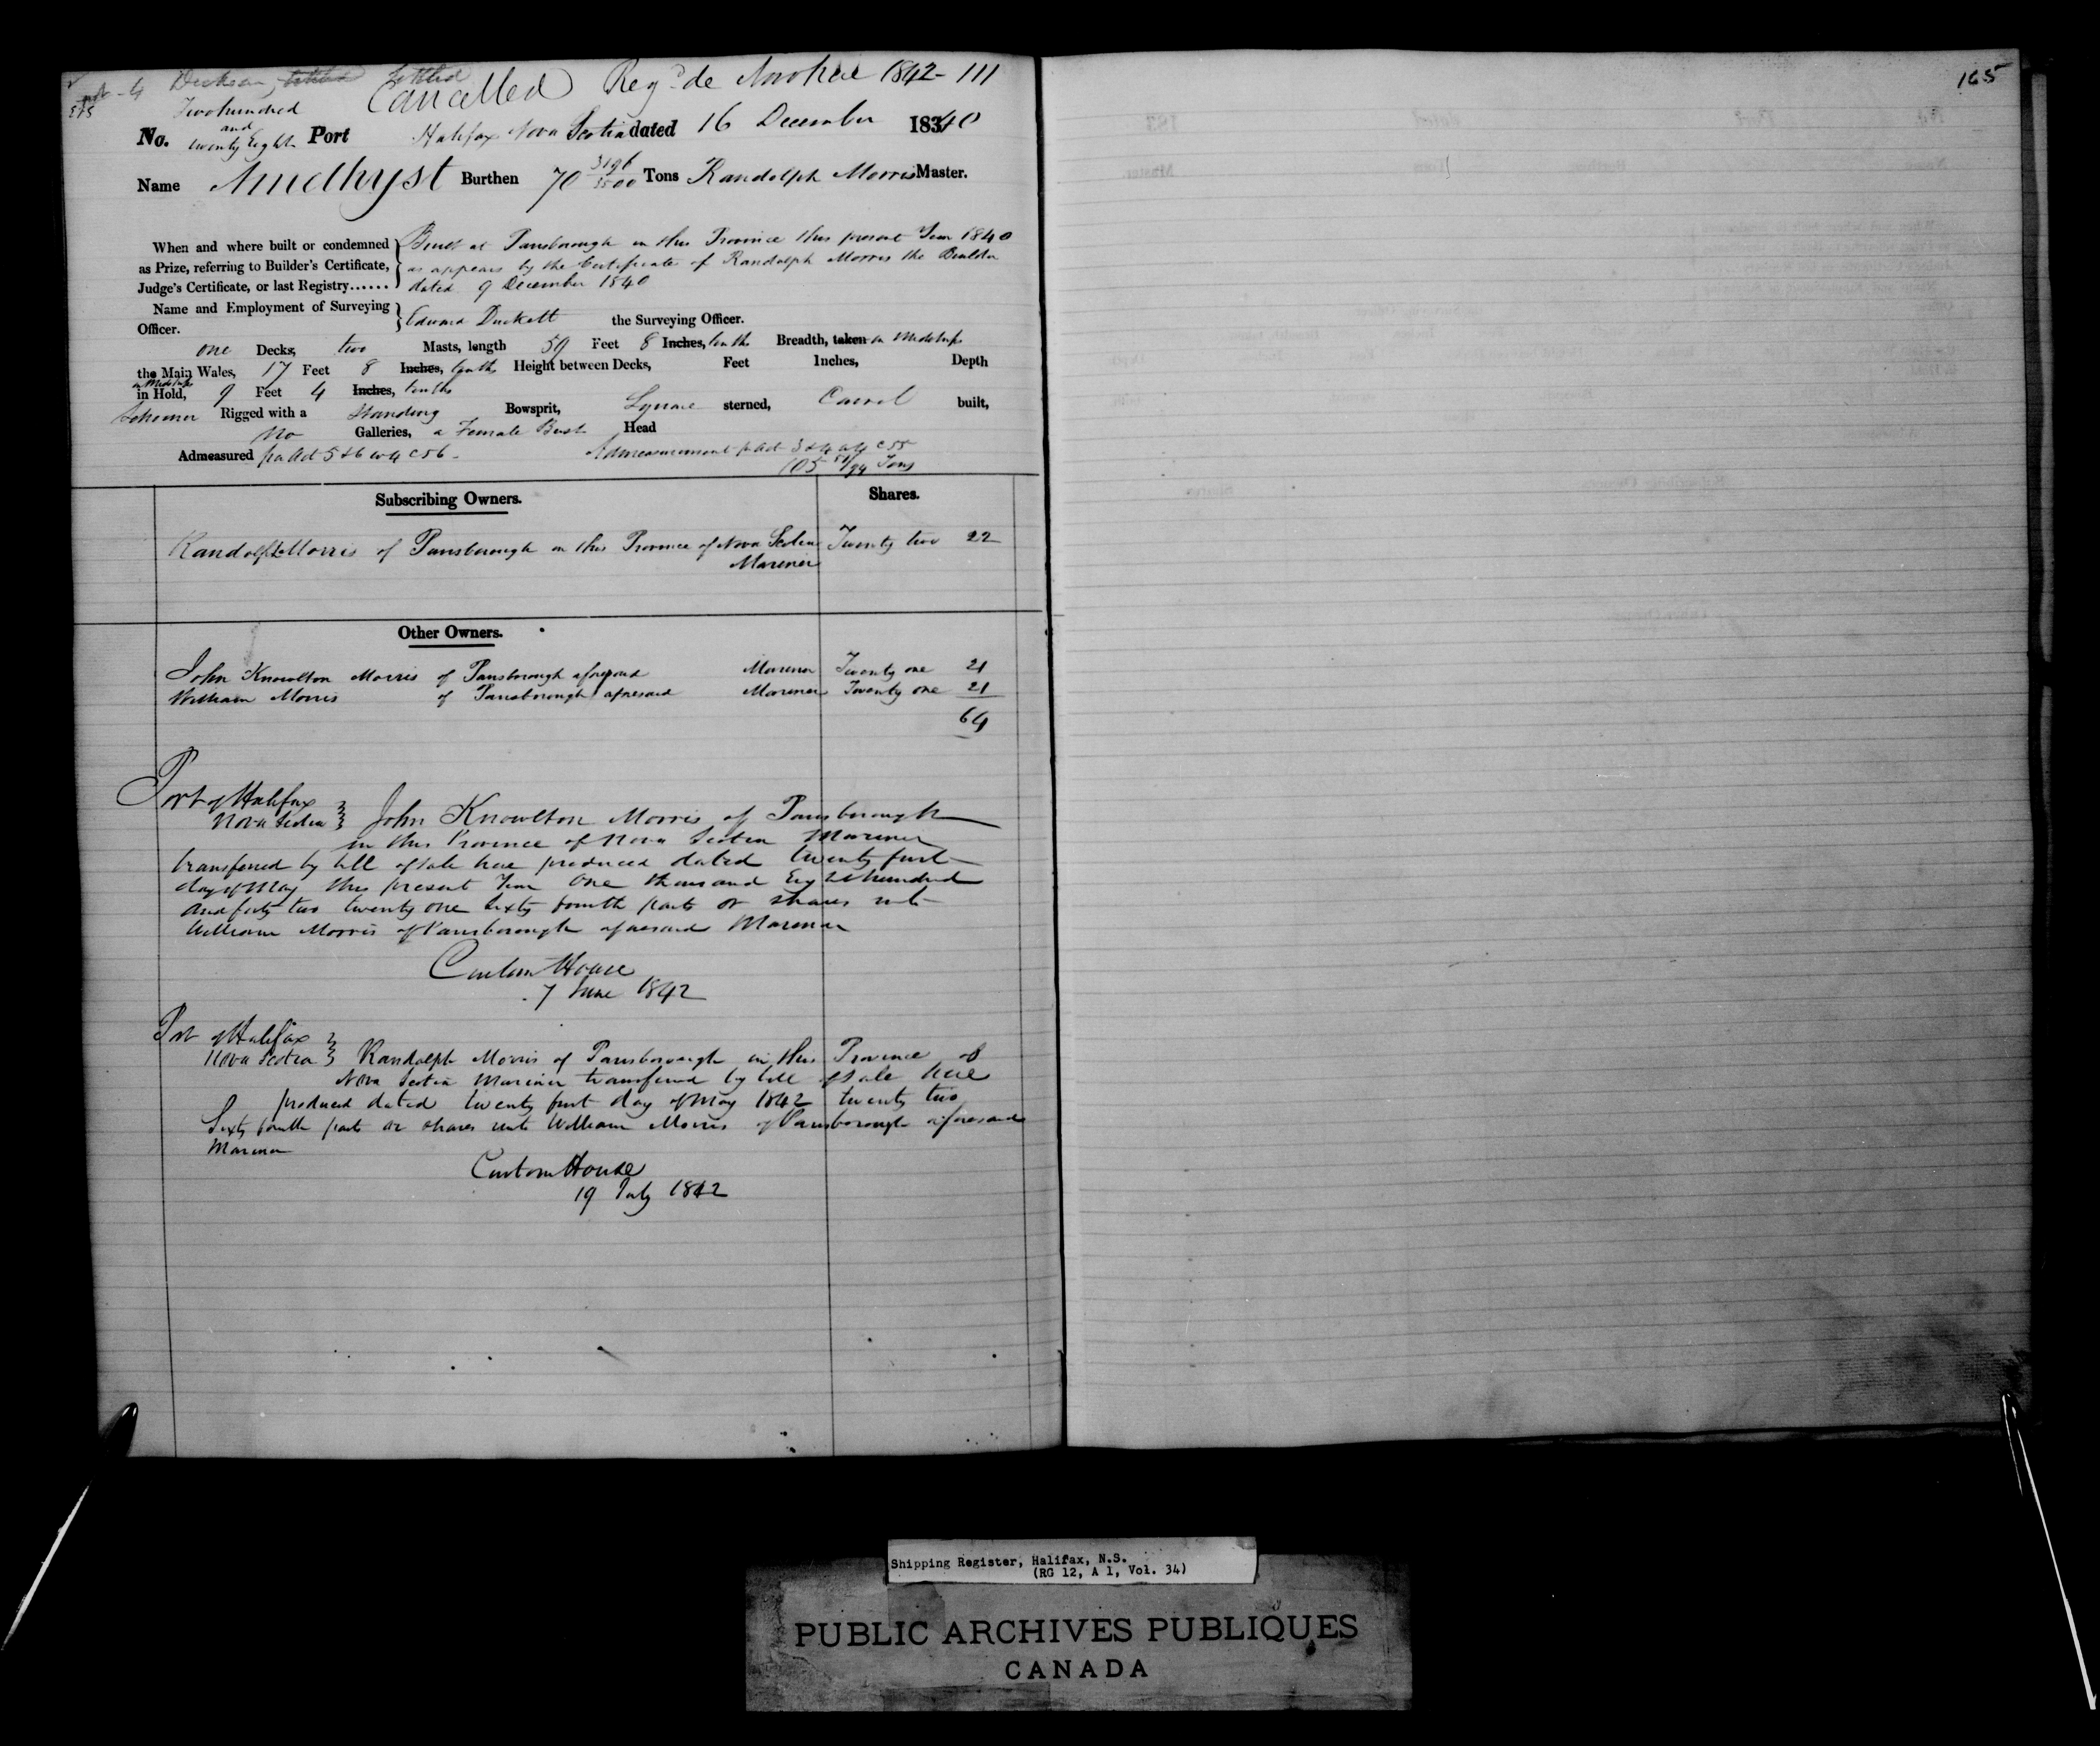 Settled
Cancelled Reg.d de Novo hac 1842 - 111
165
Two hundred
and
No. twenty Eight Port Halifax Nova Scotia dated 16 December 18340
Name Amethyst Burthen 70 Tons Randolph Morris Master.
When and where built or condemned
as Prize, referring to Builder's Certificate,
Judge's Certificate, or last Registry......
Built at Parrsborough in this Province this present Year 1840
as appears by the Certificate of Randolph Morris the Builder
dated 9 December 1840
Name and Employment of Surveying
Officer.
Edward Duckett the Surveying Officer.
one Decks, two Masts, length 59 Feet 8 Inches, tenths Breadth, taken in Midships
the Main Wales, 17 Feet 8 Inches, tenths Height between Decks, Feet Inches, Depth
in Midships
in Hold, 9 Feet 4 Inches, tenths
Schooner Rigged with a Standing Bowsprit, Square sterned, Carvel built,
no Galleries, a Female Bust Head
Admeasured per Act 5 & 6 W 4 C 56 - Admeasurement per Act 3 & 4 W 4 C 55
105 Tons
Subscribing Owners. Shares.
Randolph Morris of Parrsborough in this Province of Nova Scotia Twenty two 22
Mariner
Other Owners.
John Knowlton Morris of Parrsborough aforesaid Mariner Twenty one 21
William Morris of Parrsborough aforesaid Mariner Twenty one 21
64
Port of Halifax
Nova Scotia John Knowlton Morris of Parrsborough
in this Province of Nova Scotia Mariner
transferred by bill of sale here produced dated twenty first
day of May this present Year One thousand Eight hundred
and forty two twenty one Sixty fourth parts or shares unto
William Morris of Parrsborough aforesaid Mariner
Custom House
7 June 1842
Port of Halifax
Nova Scotia Randolph Morris of Parrsborough in this Province of
Nova Scotia Mariner transferred by bill of sale here
produced dated twenty first day of May 1842 twenty two
Sixty fourth parts or shares unto William Morris of Parrsborough aforesaid
Mariner
Custom House
19 July 1842
Shipping Register, Halifax, N.S.
(RG 12, A 1, Vol. 34)
PUBLIC ARCHIVES PUBLIQUES
CANADA